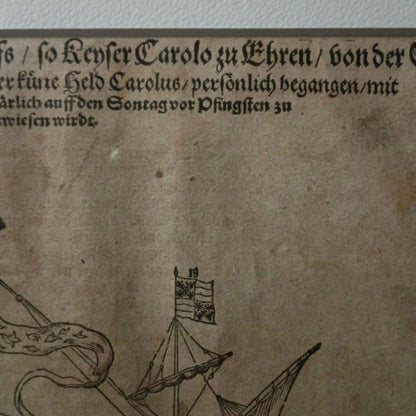 so Keyser Carolo zu Ehren / von der
küne Held Carolus / persönlich begangen / mit
ärlich auff den Sontag vor Pfingsten zu
wiesen wirdt.